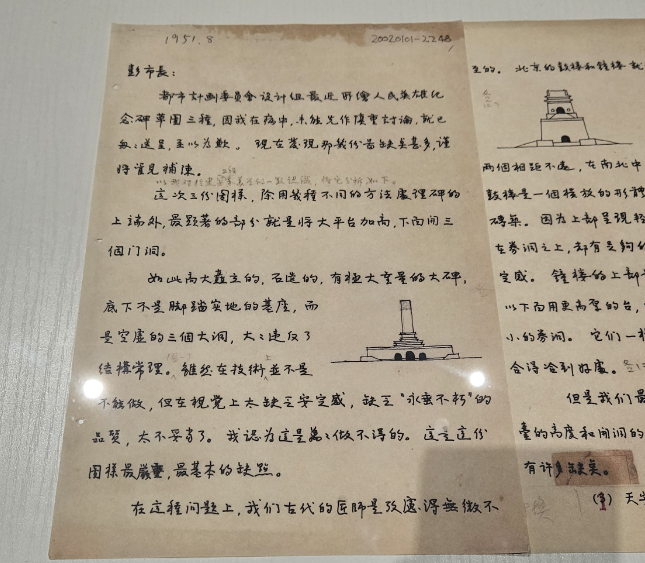 1951.8
20020101-2248
彭市長：
都市計劃委員會設計組最近所繪人民英雄紀
念碑草圖三種，因我在病中，未能先作慎重討論，就已
匆匆送呈，至以為歉。現在發現那幾份圖缺點甚多，謹
將管見補陳。
這次三份圖樣，除用幾種不同的方法處理碑的
上端外，最顯著的部分就是將大平台加高，下面開三
個門洞。
如此高大矗立的，石造的，有極大重量的大碑，
底下不是腳踏實地的基座，而
是空虛的三個大洞，大大違反了
結構常理。雖然在技術上並不是
不能做，但在視覺上太缺乏安定感，缺乏"永垂不朽"的
品質，太不妥當了。我認為這是萬萬做不得的。這是這份
圖樣最嚴重，最基本的缺點。
在這種問題上，我們古代的匠師是考慮得無微不
至的。北京的鼓樓和鐘樓就
兩個相距不遠，在南北中
鼓樓是一個橫放的形體
磚築。因為上部呈現輕
在券洞之上，却有足夠的
定感。鐘樓的上部
以下面用更高聳的台，
小的券洞。它們一樣
合得恰到好處。
但是我們最
臺的高度和開洞的
有許多缺點。
(1) 天安